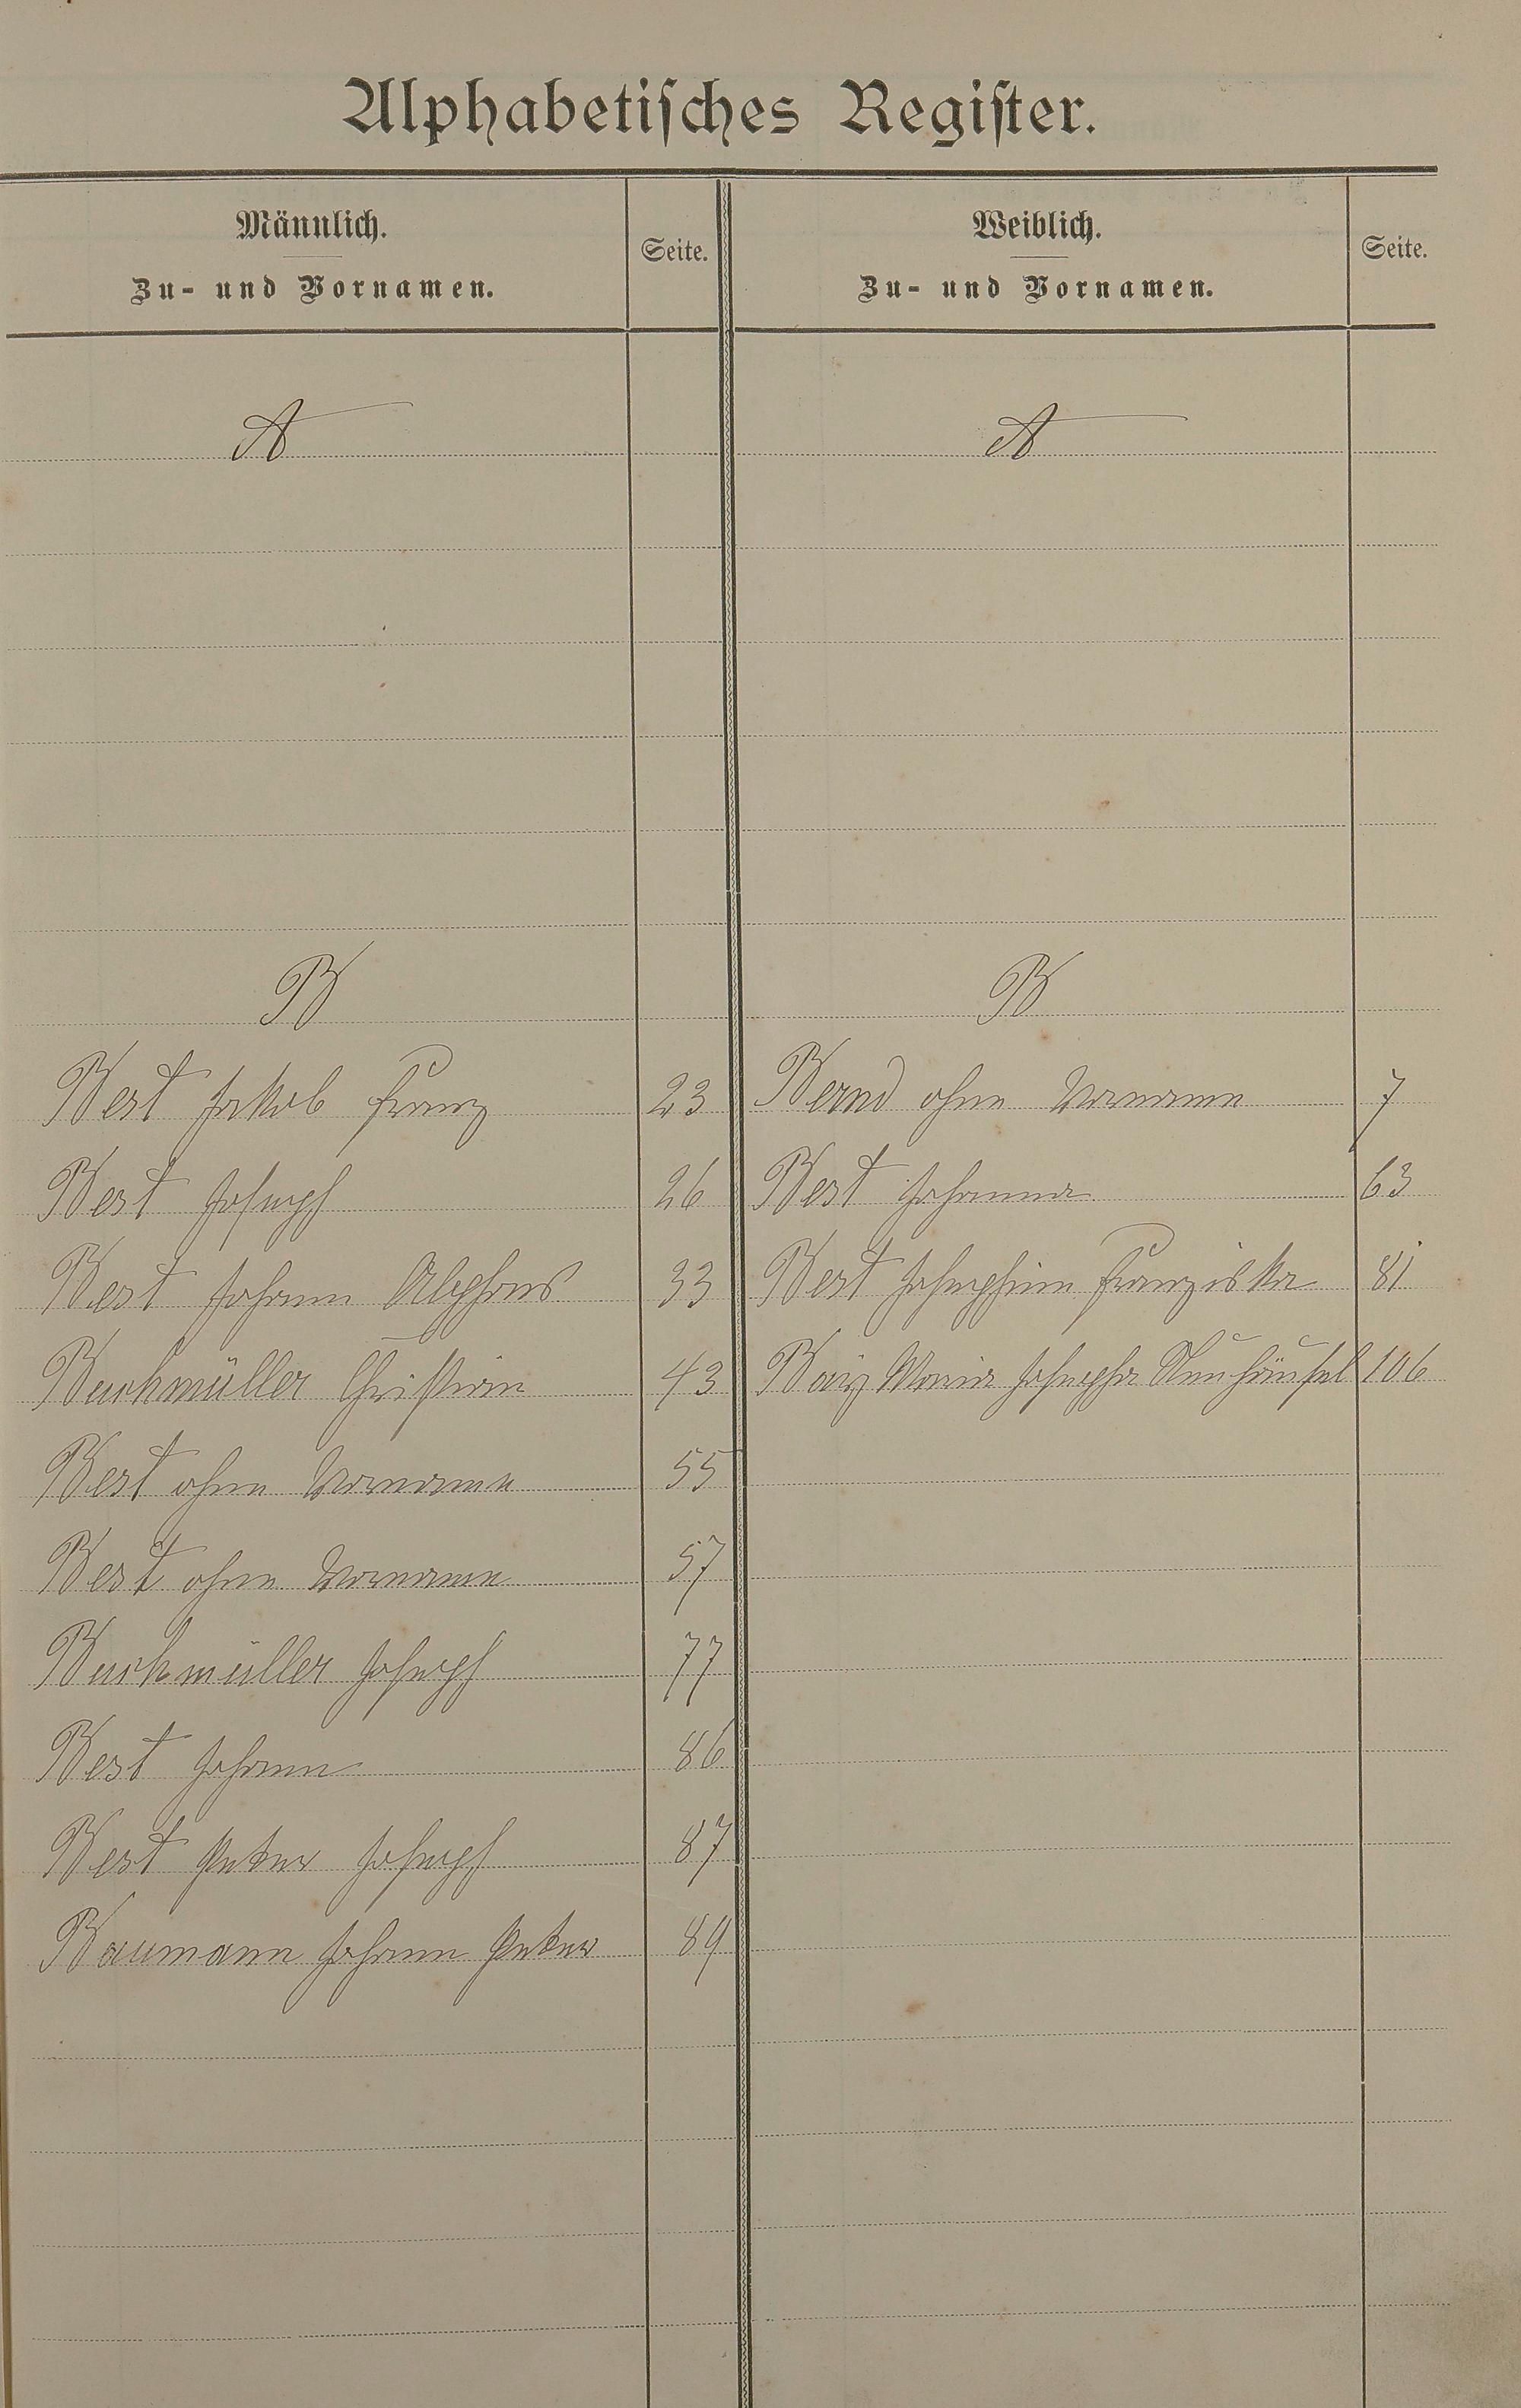 Alphabetisches Register.
Männlich.
Zu- und Vornamen.
Seite.
Weiblich.
Zu- und Vornamen.
Seite.
A
A
B
B
Best Jakob Franz 23
Bernd ohne Vorname 7
Best Joseph 26
Best Johanna 63
Best Johann Alphons 33
Best Josephine Franziska 81
Buchmüller Christian 43
Maria Josepha Neuhäusel 106
Best ohne Vorname 55
Best ohne Vorname 57
Buchmüller Joseph 77
Best Johann 86
Best Peter Joseph 87
Baumann Johann Peter 89